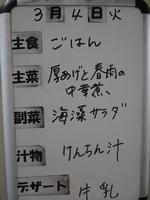 3月4日火
主食 ごはん
主菜 厚あげと春雨の
中華煮
副菜 海藻サラダ
汁物 けんちん汁
デザート 牛乳